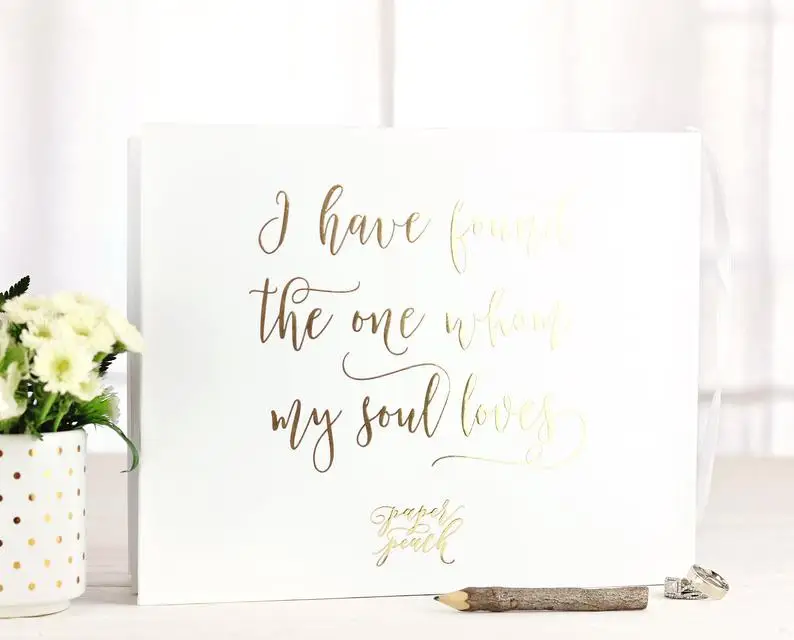 I have found
the one whom
my soul loves
paper
peach